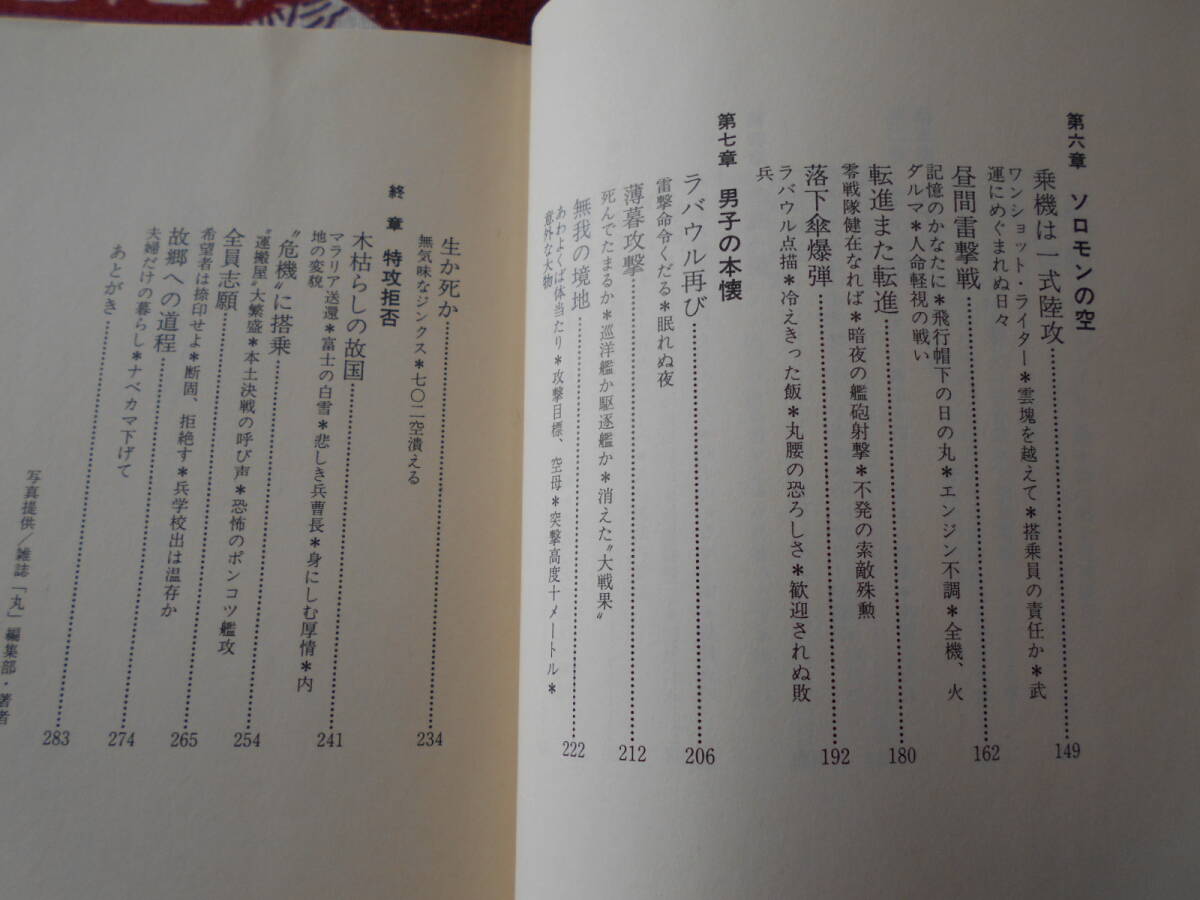 第六章 ソロモンの空
乗機は一式陸攻……149
ワンショット・ライター＊雲塊を越えて＊搭乗員の責任か＊武
運にめぐまれぬ日々
昼間雷撃戦……162
記憶のかなたに＊飛行帽下の日の丸＊エンジン不調＊全機、火
ダルマ＊人命軽視の戦い
転進また転進……180
零戦隊健在なれば＊暗夜の艦砲射撃＊不発の索敵殊勲
落下傘爆弾……192
ラバウル点描＊冷えきった飯＊丸腰の恐ろしさ＊歓迎されぬ敗
兵
第七章 男子の本懐
ラバウル再び……206
雷撃命令くだる＊眠れぬ夜
薄暮攻撃……212
死んでたまるか＊巡洋艦か駆逐艦か＊消えた〝大戦果〟
無我の境地……222
あわよくば体当たり＊攻撃目標、空母＊突撃高度十メートル＊
意外な大物
生か死か……234
無気味なジンクス＊七〇二空潰える
終章 特攻拒否
木枯らしの故国……241
マラリア送還＊富士の白雪＊悲しき兵曹長＊身にしむ厚情＊内
地の変貌
〝危機〟に搭乗……254
〝運搬屋〟大繁盛＊本土決戦の呼び声＊恐怖のポンコツ艦攻
全員志願……265
希望者は捺印せよ＊断固、拒絶す＊兵学校出は温存か
故郷への道程……274
夫婦だけの暮らし＊ナベカマ下げて
あとがき……283
写真提供／雑誌「丸」編集部・著者